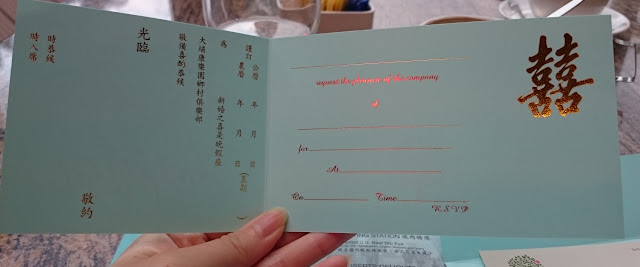 謹訂
公曆 年 月 日(星期 )
農曆 年 月 日
為
新婚之喜是晚假座
大埔康樂園鄉村俱樂部
敬備喜酌恭候
光臨
敬約
時恭候
時入席
囍
request the pleasure of the company
of
for
At
On Time
R.S.V.P
ING STATION
U.S. Beef Rib Eye